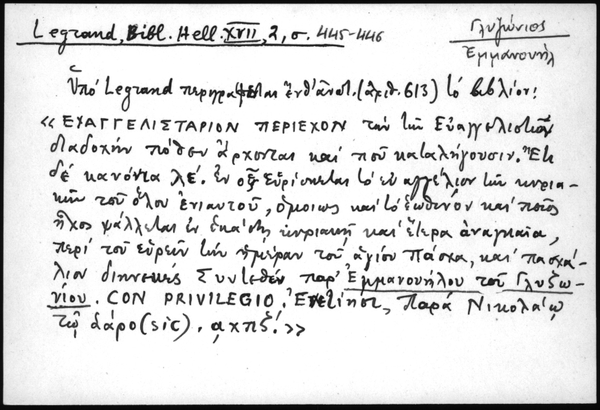 Legrand, Bibl. Hell. XVII, 2, σ. 445-446
Γλυζώνιος
Ἐμμανουήλ
Ὑπό Legrand περιγράφεται ἐνθ' ἀνωτ. (ἀριθ. 613) τό βιβλίον:
«ΕΥΑΓΓΕΛΙΣΤΑΡΙΟΝ ΠΕΡΙΕΧΟΝ τήν τῶν Εὐαγγελιστῶν
διαδοχήν πόθεν ἄρχονται καί ποῦ καταλήγουσιν. Ἔτι
δέ κανόνια λέ. ἐν οἷς εὑρίσκεται τό εὐαγγέλιον τῶν κυρια-
κῶν τοῦ ὅλου ἐνιαυτοῦ, ὁμοίως καί τό ἑωθινόν καί ποῖος
ἦχος ψάλλεται ἐν ἑκάστῃ κυριακῇ καί ἕτερα ἀναγκαῖα,
περί τοῦ εὑρεῖν τήν ἡμέραν τοῦ ἁγίου Πάσχα, καί πασχά-
λιον διηνεκές Συντεθέν παρ' Ἐμμανουήλου τοῦ Γλυζω-
νίου. CON PRIVILEGIO. Ἐνετίησι, Παρά Νικολάῳ
τῷ Σάρο (sic). αχπξ!»